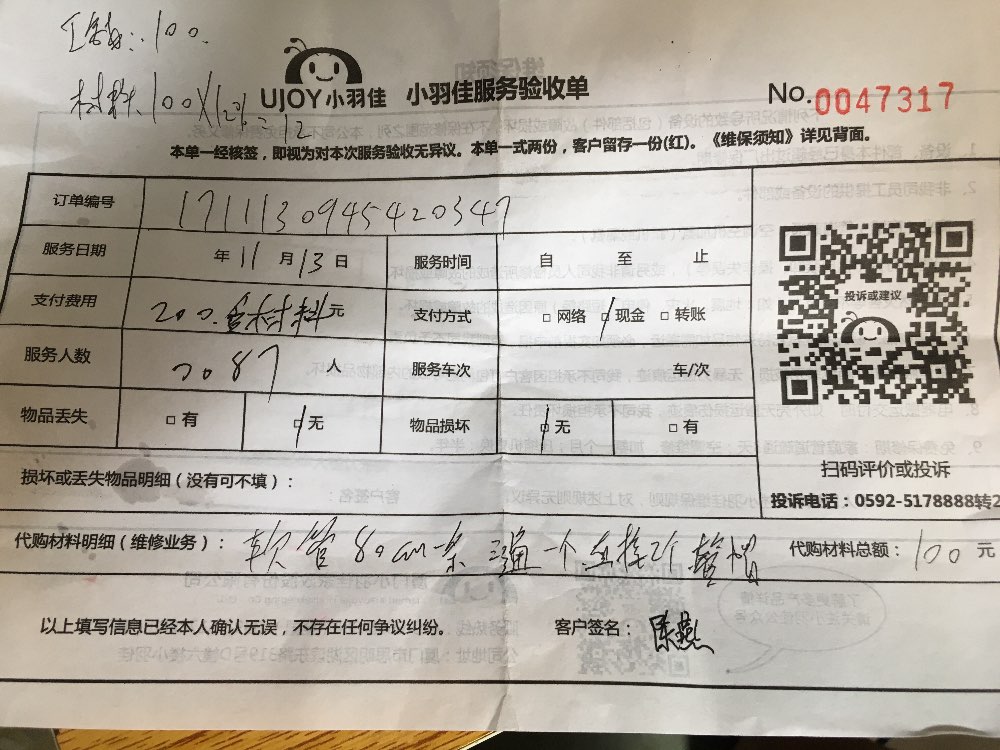 工钱:100.
材料100×12%=12
UJOY小羽佳 小羽佳服务验收单 No.0047317
本单一经核签，即视为对本次服务验收无异议。本单一式两份，客户留存一份(红)。《维保须知》详见背面。
订单编号 1711130945420347
服务日期 年11月13日 服务时间 自 至 止
支付费用 200.含材料元 支付方式 □网络 □现金 □转账
投诉或建议
服务人数 2087 人 服务车次 车/次
物品丢失 □有 □无 物品损坏 □无 □有
扫码评价或投诉
损坏或丢失物品明细（没有可不填）：
投诉电话：0592-5178888转2
代购材料明细（维修业务）： 软管80cm一条 三通一个 直接2个 管帽 代购材料总额：100元
以上填写信息已经本人确认无误，不存在任何争议纠纷。 客户签名：陈燕